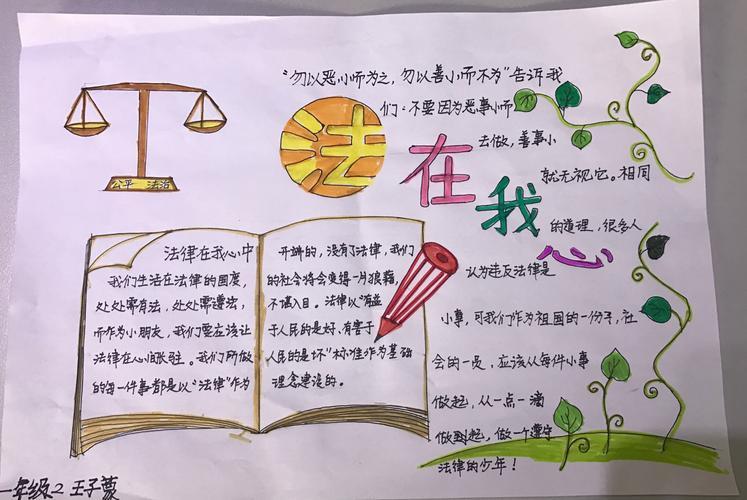 "勿以恶小师为之，勿以善小而不为"告诉我
们：不要因为恶事小师
去做，善事小
就无视它。相同
的道理，很多人
认为违反法律是
小事，可我们作为祖国的一份子，社
会的一员，应该从每件小事
做起，从一点一滴
做到起，做一个遵守
法律的少年！
法在我心
公平 法治
法律在我心中
我们生活在法律的国度，
处处需有法，处处需遵法，
而作为小朋友，我们要应该让
法律在心间张驻。我们所做
的每一件事都是以"法律"作为
开端的，没有了法律，我们
的社会将会变得一片狼藉，
不堪入目。法律以"有益
于人民的是好，有害于
人民的是坏"标准作为基础
理念建设的。
一年级2 王子蒙